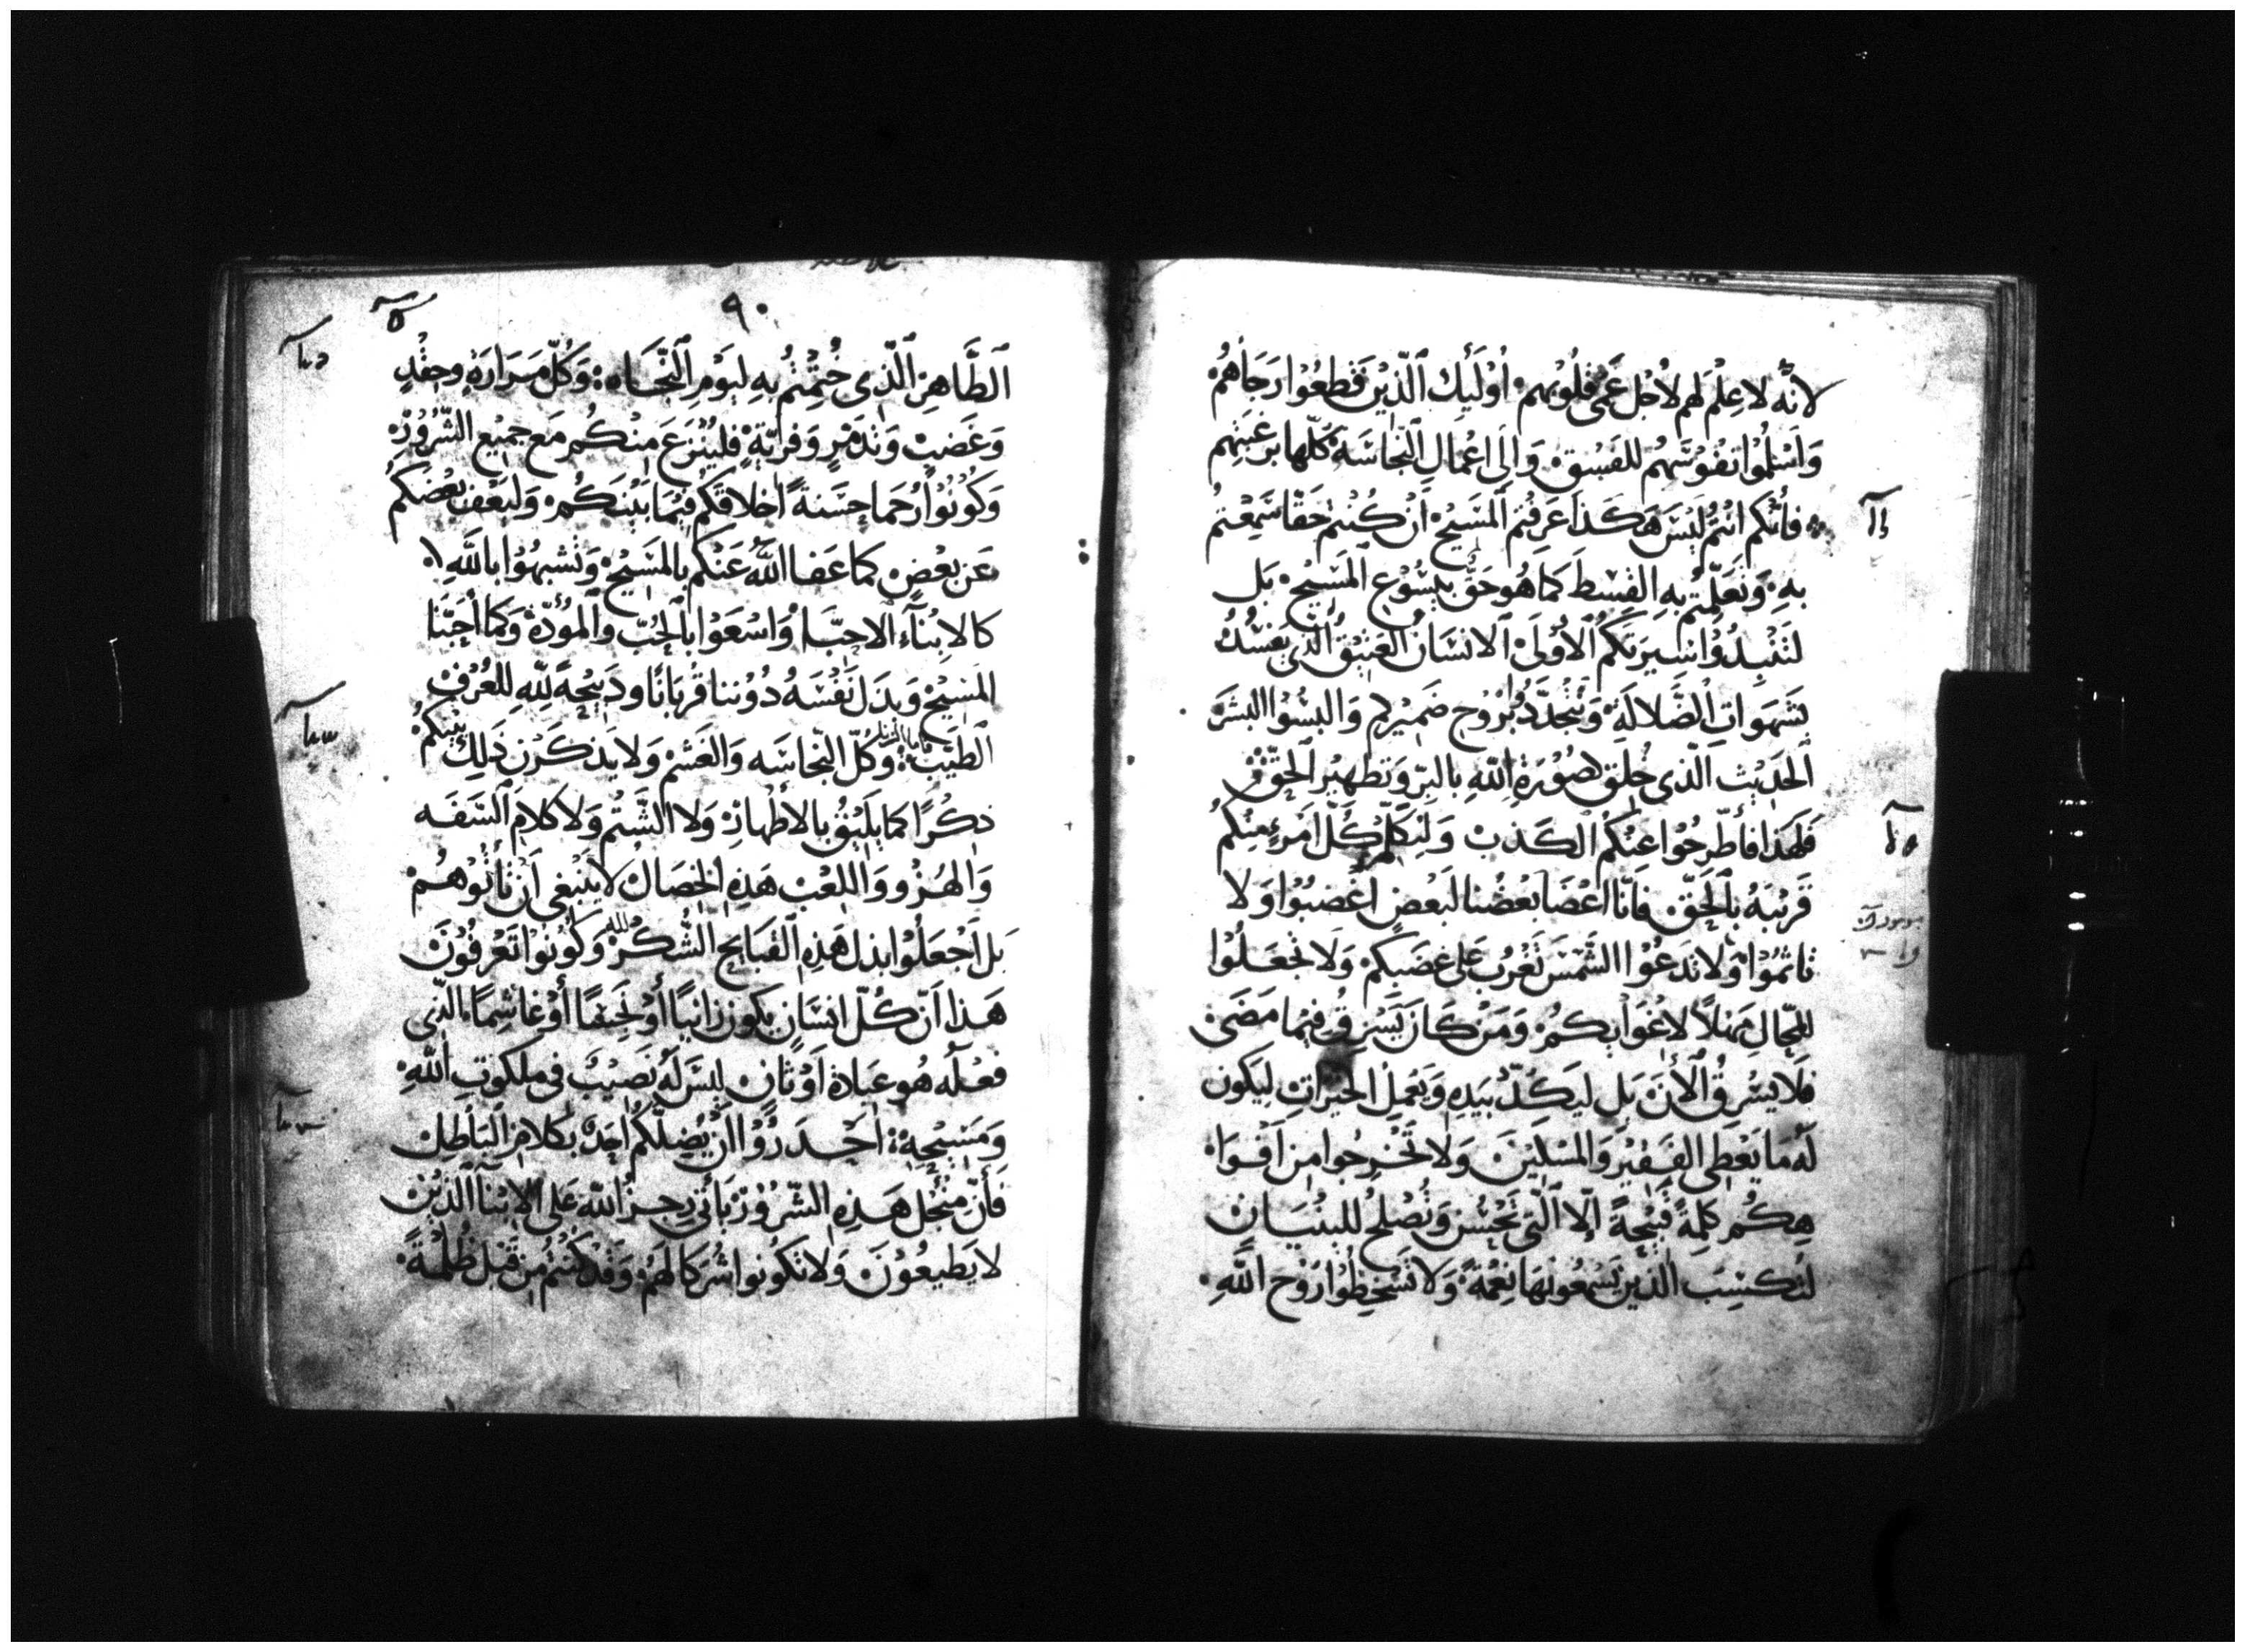 لانّه لا علم لهم لاجل عمى قلوبهم اوليك الذين قطعوا رجاهم
واسلموا نفوسهم للفسق والى اعمال النجاسة كلها برغبتهم
فأنكم انتم ليس هكذا عرفتم المسيح ان كنتم حقا سمعتم
به وتعلمتم به القسط كما هو حق بيسوع المسيح بل
لتنبدوا سيرتكم الاولى الانسان العتيق الذي يفسد
بشهوات الضلالة وتتجدد بروح ضميركم والبسوا البشر
الحديث الذي خلق لصورة الله بالبر وتطهير الحق
فلهذا فأطرحوا عنكم الكذب وليكلم كل امرء منكم
قريبه بالحق فانّا اعضا بعضنا لبعض اغضبوا ولا
تاثموا ولا تدعوا الشمس تغرب على غضبكم ولا تجعلوا
للمحال مهلاً لاغوايكم ومن كان يسرق فيما مضى
فلا يسرق الأن بل ليكدّ بيديه ويعمل الخيرات ليكون
له ما يعطى الفقير والمسكين ولا تخرجوا من افوا
هكم كلمة قبيحة الّا التى تحسن وتصلح للبنيان
لتكسب الذين يسمعونها نعمة ولا تسخطوا روح الله
٩٠
الطاهر الذي ختمتم به ليوم النجاه وكل مرارة وحقد
وغضب وتدمر وفرية فلينزع منكم مع جميع الشرور
وكونوا رحما حسنة اخلاقكم فيما بينكم وليعف بعضكم
عن بعض كما عفا الله عنكم بالمسيح وتشبهوا بالله
كالابناء الاحبّا واسعوا بالحب والمودة وكما أحبنا
المسيح وبدل نفسه دوننا قربانا ودبيحة لله للعرف
الطيب وكل النجاسه والغشم ولا يذكرن ذلك بينكم
ذكرًا كما يليق بالاطهار ولا الشتم ولا كلام السفه
والهزو واللعب هذه الخصال لا ينبغى ان تأتوهم
بل اجعلوا بدل هذه القبايح الشكر لله وكونوا تعرفون
هذا انّ كلّ انسان يكون زانيا أو نجسًا أو غاشمًا الذى
فعله هو عبادة اوثان ليس له نصيب فى ملكوت الله
ومسيحه احدروا ان يضلكم احد بكلام الباطل
فأن منجل هذه الشرور يأتى رجز الله على الابنا الذين
لا يطيعون ولا تكونوا شركا لهم وقد كنتم من قبل ظلمة